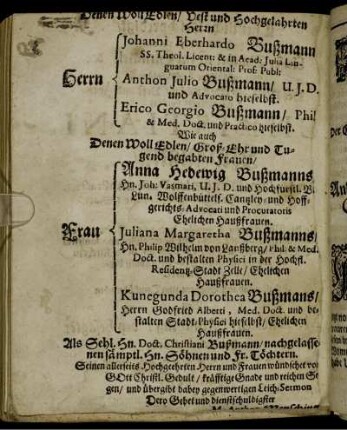 Denen Woll Edlen/ Vest und Hochgelahrten
Herrn
Johanni Eberhardo Bußmann
SS. Theol. Licent: & in Acad: Julia Lin-
guarum Oriental: Prof. Publ:
Herrn
Anthon Julio Bußmann/ U. J. D.
und Advocato hieselbst.
Erico Georgio Bußmann/ Phil.
& Med. Doct. und Practico hieselbst.
Wie auch
Denen Woll Edlen/ Groß-Ehr und Tu-
gend begabten Frauen/
Anna Hedewig Bußmanns
Hn. Joh: Vasmari, U. J. D. und Hochfürstl. Br.
Lün. Wolffenbüttels. Cantzley- und Hoff-
gerichts-Advocati und Procuratoris
Ehelichen Haußfrauen.
Frau
Juliana Margaretha Bußmanns/
Hn. Philip Wilhelm von Lanßberg/ Phil. & Med.
Doct. und bestalten Physici in der Hochfl.
Residentz-Stadt Zelle/ Ehelichen
Haußfrauen.
Kunegunda Dorothea Bußmans/
Herrn Godfried Alberti, Med. Doct. und be-
stalten Stadt-Physici hieselbst/ Ehelichen
Haußfrauen.
Als Sehl. Hn. Doct. Christiani Bußmann/ nachgelasse-
nen sämptl. Hn. Söhnen und Fr. Töchtern.
Seinen allerseits Hochgeehrten Herrn und Frauen wündschet von
GOtt Christl. Gedult/ kräfftige Gnade und reichen Se-
gen/ und übergibt dabey gegenwertigen Leich-Sermon
Dero Gebet und dienstschuldigster